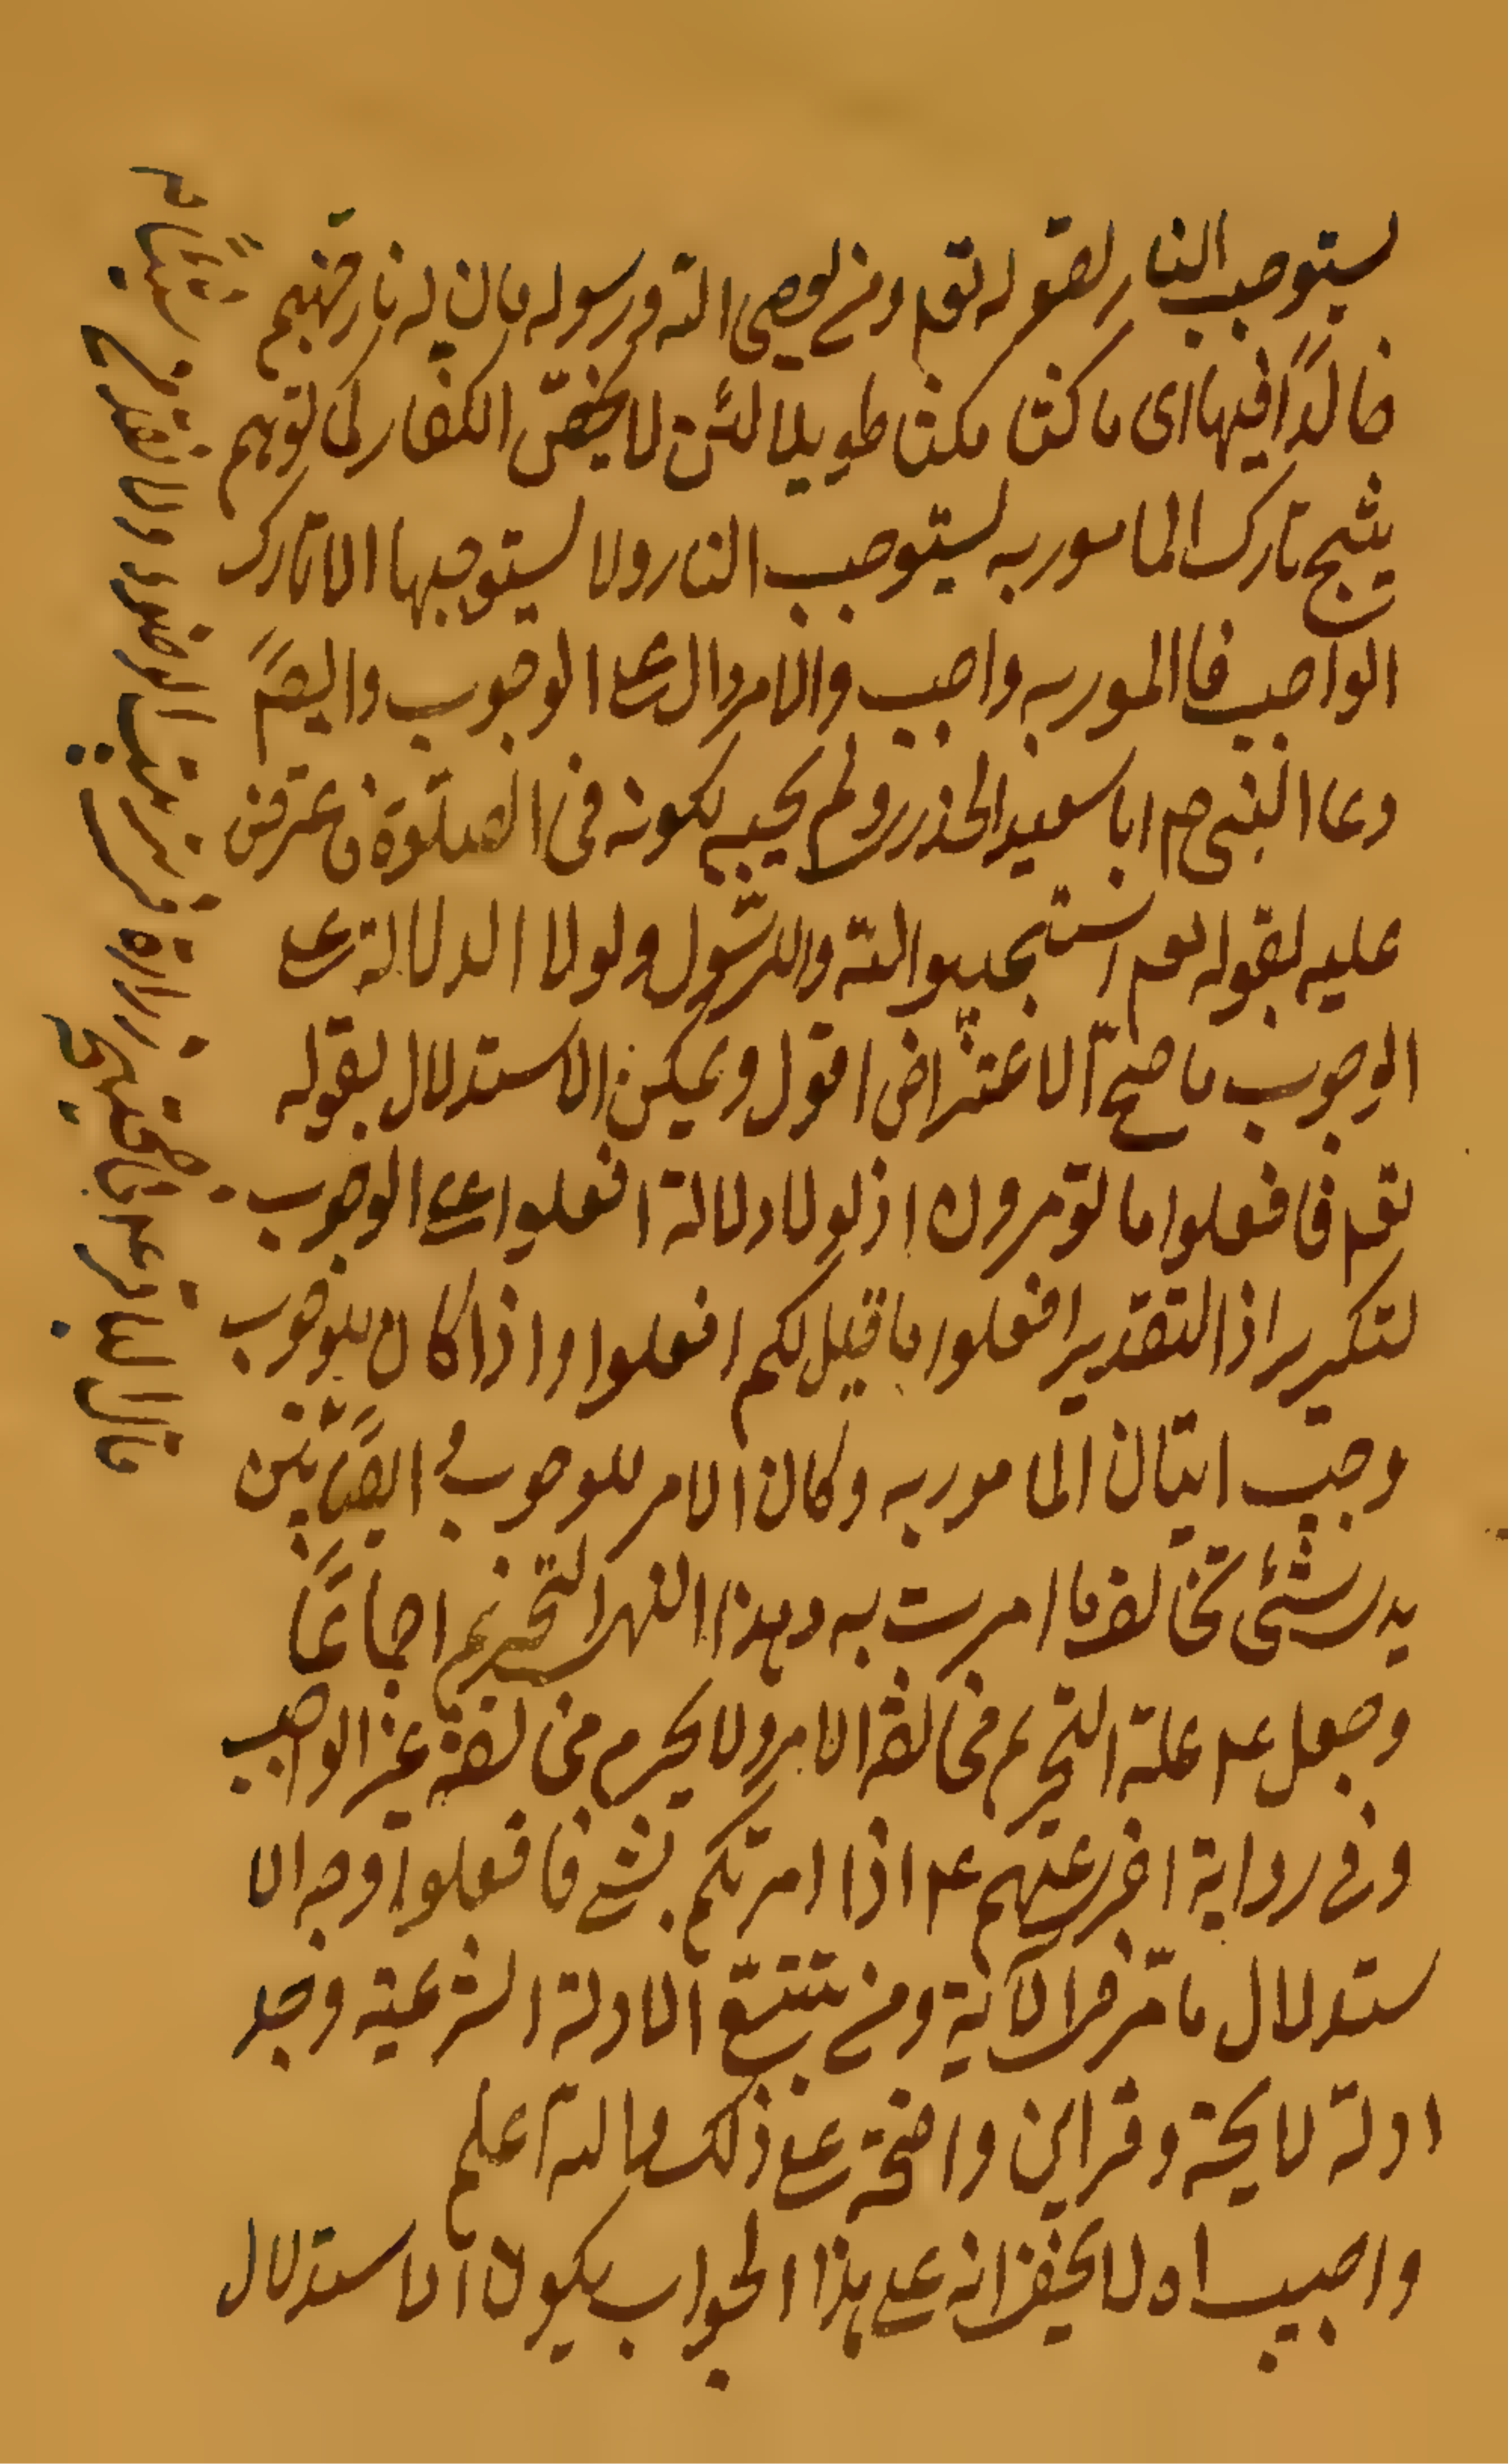 يستوجب النار لقوله تعم ومن يعصى الله ورسوله فان له نار جهنم
خالدًا فيها اى ماكثا مكثا طويلا لئن لا يخصّ الكفار كما توهم
ينتج تارك المامور به يستوجب النار ولا يستوجبها الا تارك
الواجب فاالمور به واجب والامر دال على الوجوب وايضًا
دعا النبى صم ابا سعيد الخذرى ولم يجبه لكونه فى الصلوة فاعترض
عليه بقوله تعم استجيبوا لله وللرسول ولولا الدلالة على
الوجوب ما صحّ الاعتراض اقول ويمكن الاستدلال بقوله
تعم فافعلوا ما تؤمرون اذ لولا دلالة افعلوا على الوجوب
لتكرير اذ التقدير افعلوا ما قيل لكم افعلوا واذا كان للوجوب
وجب اتيان المامور به وكان الامر للوجوب ايضًا
يدى شئى تخالف ما امرت به وهذا النهى لتحريم اجماعًا
وجعل عم علة التحريم مخالفة الامر ولا يحرم مخالفة غير الواجب
وفى رواية اخرى عنهم عم اذا امرتكم بشئ فافعلوا وجه الا
ستدلال ما مّر فى الآية ومن تتبّع الادلة الشرعية وجد
ادلة لايحة وقراين واضحة على ذلك والله اعلم
واجيب اه لا يخفى انه على هذا الجواب يكون الاستدلال
قال الباقر عم